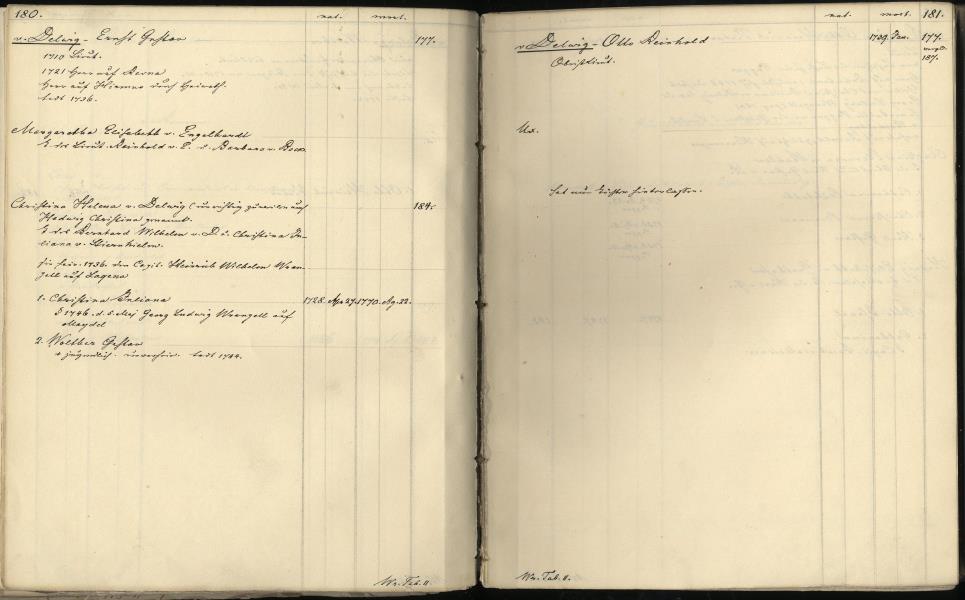 180. nat. mort.
v. Delwig - Ernst Gustav 177.
1710 Lieut.
1721 Herr auf Rerna
Herr auf Hirmus durch Heirath.
todt 1736.
Margaretha Elisabeth v. Engelhardt
T. des Lieut. Reinhold v. E. u. Barbara v. Bock
Christina Helena v. Delwig (unrichtig zuweilen auch 184.
Hedwig Christina genannt.
T. des Bernhard Wilhelm v. D. u. Christina Ju-
liana v. Stiernhielm.
1736. den Capit. Heinrich Wilhelm Wran-
gell auf Lagena
1. Christina Juliana 1728. Apr 27. 1770. Ag. 22.
1746. d. s. Maj Georg Ludwig Wrangell auf
Maydel
2. Wolther Gustav
+ jugendlich. unverheir. todt 1744.
Wr. Tab. II.
nat. mort. 181.
v. Delwig - Otto Reinhold 1709. Jan. 177.
Obristlieut. vergl.
187.
Ux.
hat nur Töchter hinterlassen.
Wr. Tab. II.